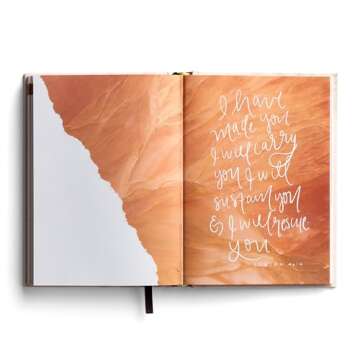 I have
made you
I will carry
you I will
sustain you
& I will rescue
you